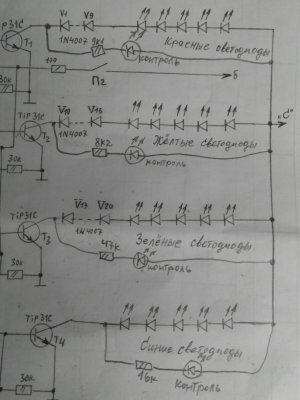 TiP31C
V1 V9
1N4007
9k1
T1
Красные светодиоды
контроль
30k
100
П2
б
"С"
TiP31C
V10 V16
1N4007
T2
8k2
Жёлтые светодиоды
контроль
30k
TiP31C
V17 V20
1N4007
T3
47k
Зелёные светодиоды
контроль
30k
TiP31C
T4
Синие светодиоды
16k
контроль
30k